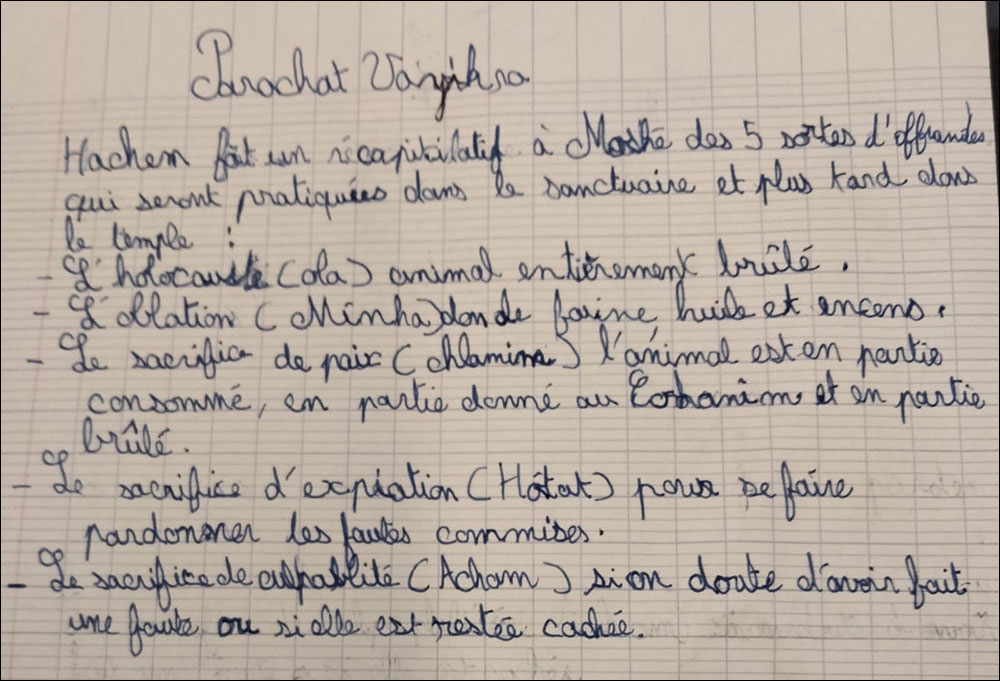 Parachat Vayikra
Hachem fait un récapitilatif à Moshé des 5 sortes d'offrandes
qui seront pratiquées dans le sanctuaire et plus tard dans
le temple :
- L'holocauste (ola) animal entièrement brûlé.
- L'oblation (Minha) don de farine, huile et encens.
- Le sacrifice de paix (chlamime) l'animal est en partie
consommé, en partie donné au Cohanim et en partie
brûlé.
- Le sacrifice d'expiation (Hatat) pour se faire
pardonner les fautes commises.
- Le sacrifice de culpablité (Acham) si on doute d'avoir fait
une faute ou si elle est restée cachée.